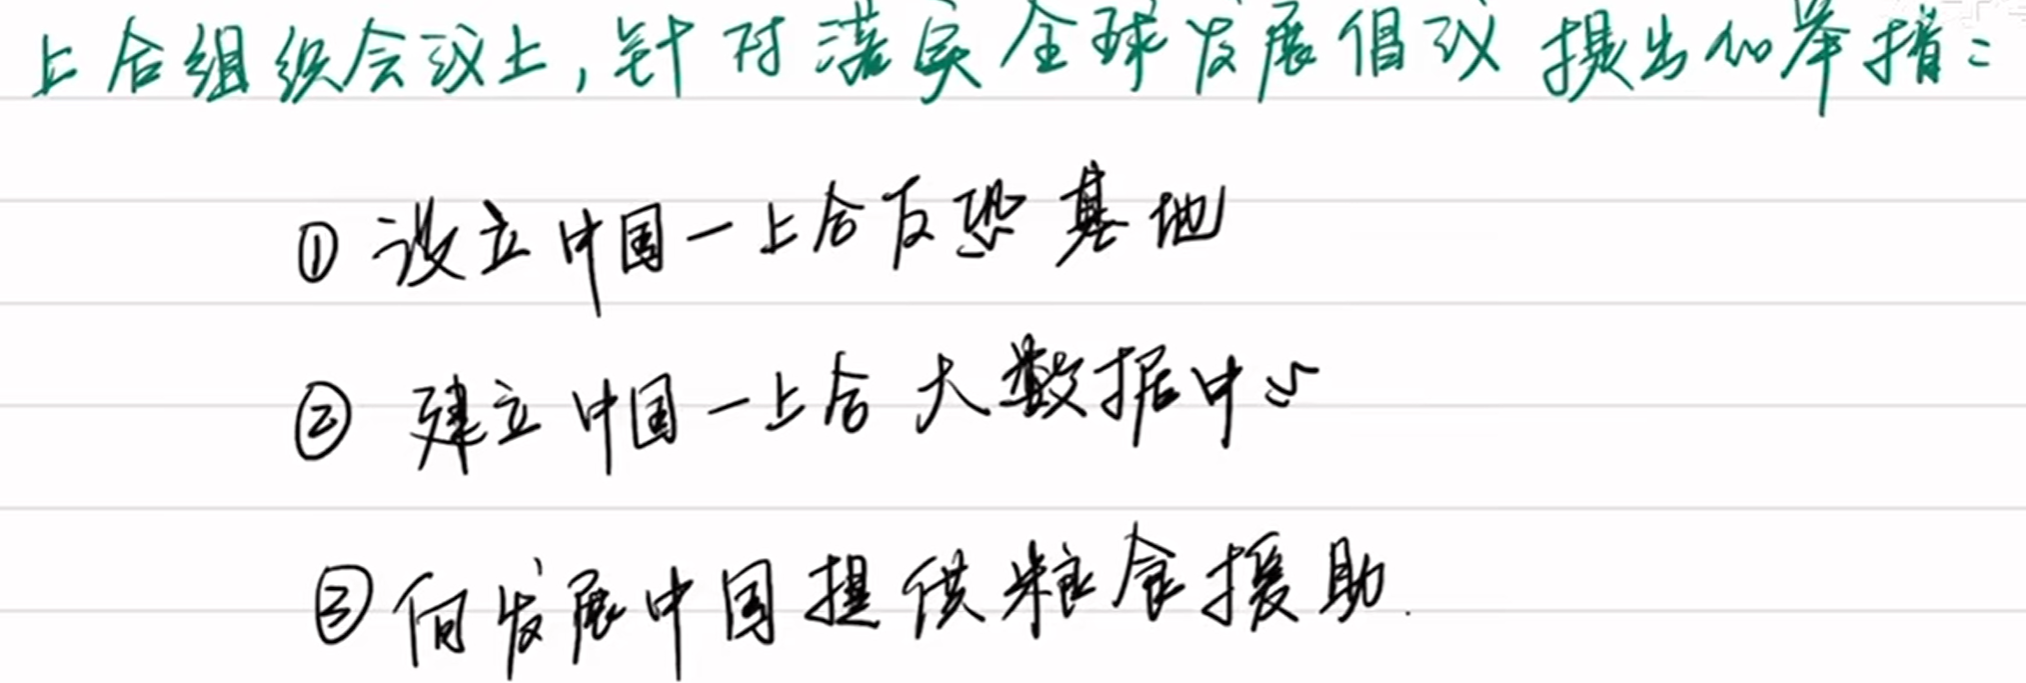 上合组织会议上,针对落实全球发展倡议提出的举措:
① 设立中国一上合反恐基地
② 建立中国一上合大数据中心
③ 向发展中国提供粮食援助.